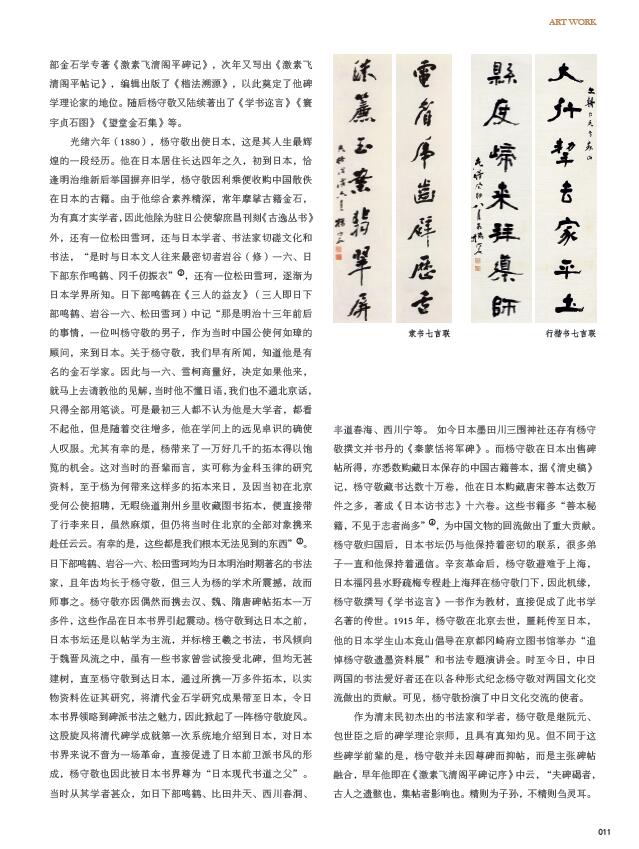 ART WORK
部金石学专著《激素飞清阁平碑记》，次年又写出《激素飞
清阁平帖记》，编辑出版了《楷法溯源》，以此奠定了他碑
学理论家的地位。随后杨守敬又陆续著出了《学书迩言》《寰
宇贞石图》《望堂金石集》等。
光绪六年（1880），杨守敬出使日本，这是其人生最辉
煌的一段经历。他在日本居住长达四年之久，初到日本，恰
逢明治维新后举国摒弃旧学，杨守敬因利乘便收购中国散佚
在日本的古籍。由于他综合素养精深，常年摩挲古籍金石，
为有真才实学者，因此他除为驻日公使黎庶昌刊刻《古逸丛书》
外，还有一位松田雪珂，还与日本学者、书法家切磋文化和
书法，“是时与日本文人往来最密切者岩谷（修）一六、日
下部东作鸣鹤、冈千仞振衣”②，还有一位松田雪珂，逐渐为
日本学界所知。日下部鸣鹤在《三人的益友》（三人即日下
部鸣鹤、岩谷一六、松田雪珂）中记“那是明治十三年前后
的事情，一位叫杨守敬的男子，作为当时中国公使何如璋的
顾问，来到日本。关于杨守敬，我们早有所闻，知道他是有
名的金石学家。因此与一六、雪柯商量好，决定如果他来，
就马上去请教他的见解，当时他不懂日语，我们也不通北京话，
只得全部用笔谈。可是最初三人都不认为他是大学者，都看
不起他，但是随着交往增多，他在学问上的远见卓识的确使
人叹服。尤其有幸的是，杨带来了一万好几千的拓本得以饱
览的机会。这对当时的吾辈而言，实可称为金科玉律的研究
资料，至于杨为何带来这样多的拓本来日，及因当初在北京
受何公使招聘，无暇绕道荆州乡里收藏图书拓本，便直接带
了行李来日，虽然麻烦，但仍将当时住北京的全部对象携来
赴任云云。有幸的是，这些都是我们根本无法见到的东西”③。
日下部鸣鹤、岩谷一六、松田雪珂均为日本明治时期著名的书法
家，且年齿均长于杨守敬，但三人为杨的学术所震撼，故而
师事之。杨守敬亦因偶然而携去汉、魏、隋唐碑帖拓本一万
多件，这些作品在日本书界引起震动。杨守敬到达日本之前，
日本书坛还是以帖学为主流，并标榜王羲之书法，书风倾向
于魏晋风流之中，虽有一些书家曾尝试接受北碑，但均无甚
建树，直至杨守敬到达日本，通过所携一万多件拓本，以实
物资料佐证其研究，将清代金石学研究成果带至日本，令日
本书界领略到碑派书法之魅力，因此掀起了一阵杨守敬旋风。
这股旋风将清代碑学成就第一次系统地介绍到日本，对日本
书界来说不啻为一场革命，直接促进了日本前卫派书风的形
成，杨守敬也因此被日本书界尊为“日本现代书道之父”。
当时从其学者甚众，如日下部鸣鹤、比田井天、西川春洞、
電眉虎齒礔歷舌
珠簾玉案翡翠屏
隶书七言联
大行挈去家平土
縣度歸来拜導師
行楷书七言联
丰道春海、西川宁等。 如今日本墨田川三围神社还存有杨守
敬撰文并书丹的《秦蒙恬将军碑》。而杨守敬在日本出售碑
帖所得，亦悉数购藏日本保存的中国古籍善本，据《清史稿》
记，杨守敬藏书达数十万卷，他在日本购藏唐宋善本达数万
件之多，著成《日本访书志》十六卷。这些书籍多“善本秘
籍，不见于志者尚多”④，为中国文物的回流做出了重大贡献。
杨守敬归国后，日本书坛仍与他保持着密切的联系，很多弟
子一直和他保持着通信。辛亥革命后，杨守敬避难于上海，
日本福冈县水野疏梅专程赴上海拜在杨守敬门下，因此机缘，
杨守敬撰写《学书迩言》一书作为教材，直接促成了此书学
名著的传世。1915 年，杨守敬在北京去世，噩耗传至日本，
他的日本学生山本竟山倡导在京都冈崎府立图书馆举办“追
悼杨守敬遗墨资料展”和书法专题演讲会。时至今日，中日
两国的书法爱好者还在以各种形式纪念杨守敬对两国文化交
流做出的贡献。可见，杨守敬扮演了中日文化交流的使者。
作为清末民初杰出的书法家和学者，杨守敬是继阮元、
包世臣之后的碑学理论宗师，且具有真知灼见。但不同于这
些碑学前辈的是，杨守敬并未因尊碑而抑帖，而是主张碑帖
融合，早年他即在《激素飞清阁平碑记序》中云，“夫碑碣者，
古人之遗骸也，集帖者影响也。精则为子孙，不精则刍灵耳。
011